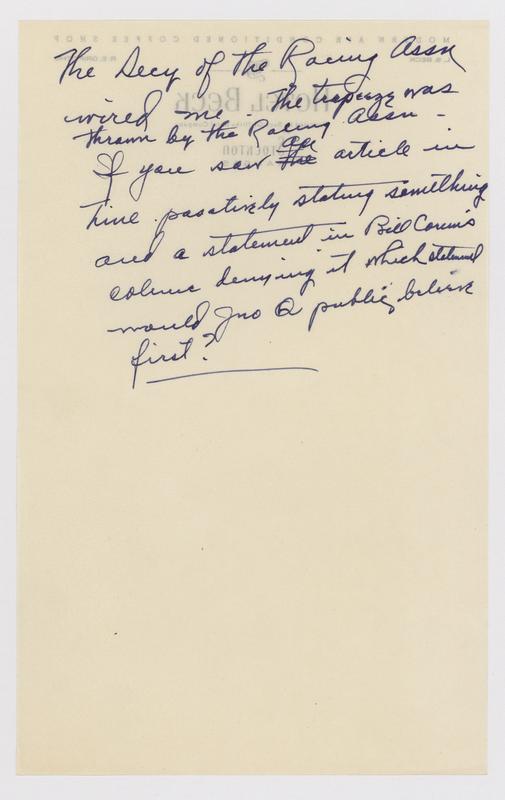 The Secy of the Racing Assn
wired me. The trapeze was
thrown by the Racing Assn -
an
If you saw the article in
time positively stating something
and a statement in Bill Corum's
colume denying it which statement
would Jno Q public believe
first?
MODERN AIR CONDITIONED COFFEE SHOP
L. S. BECK
HOTEL BECK
STOCKTON